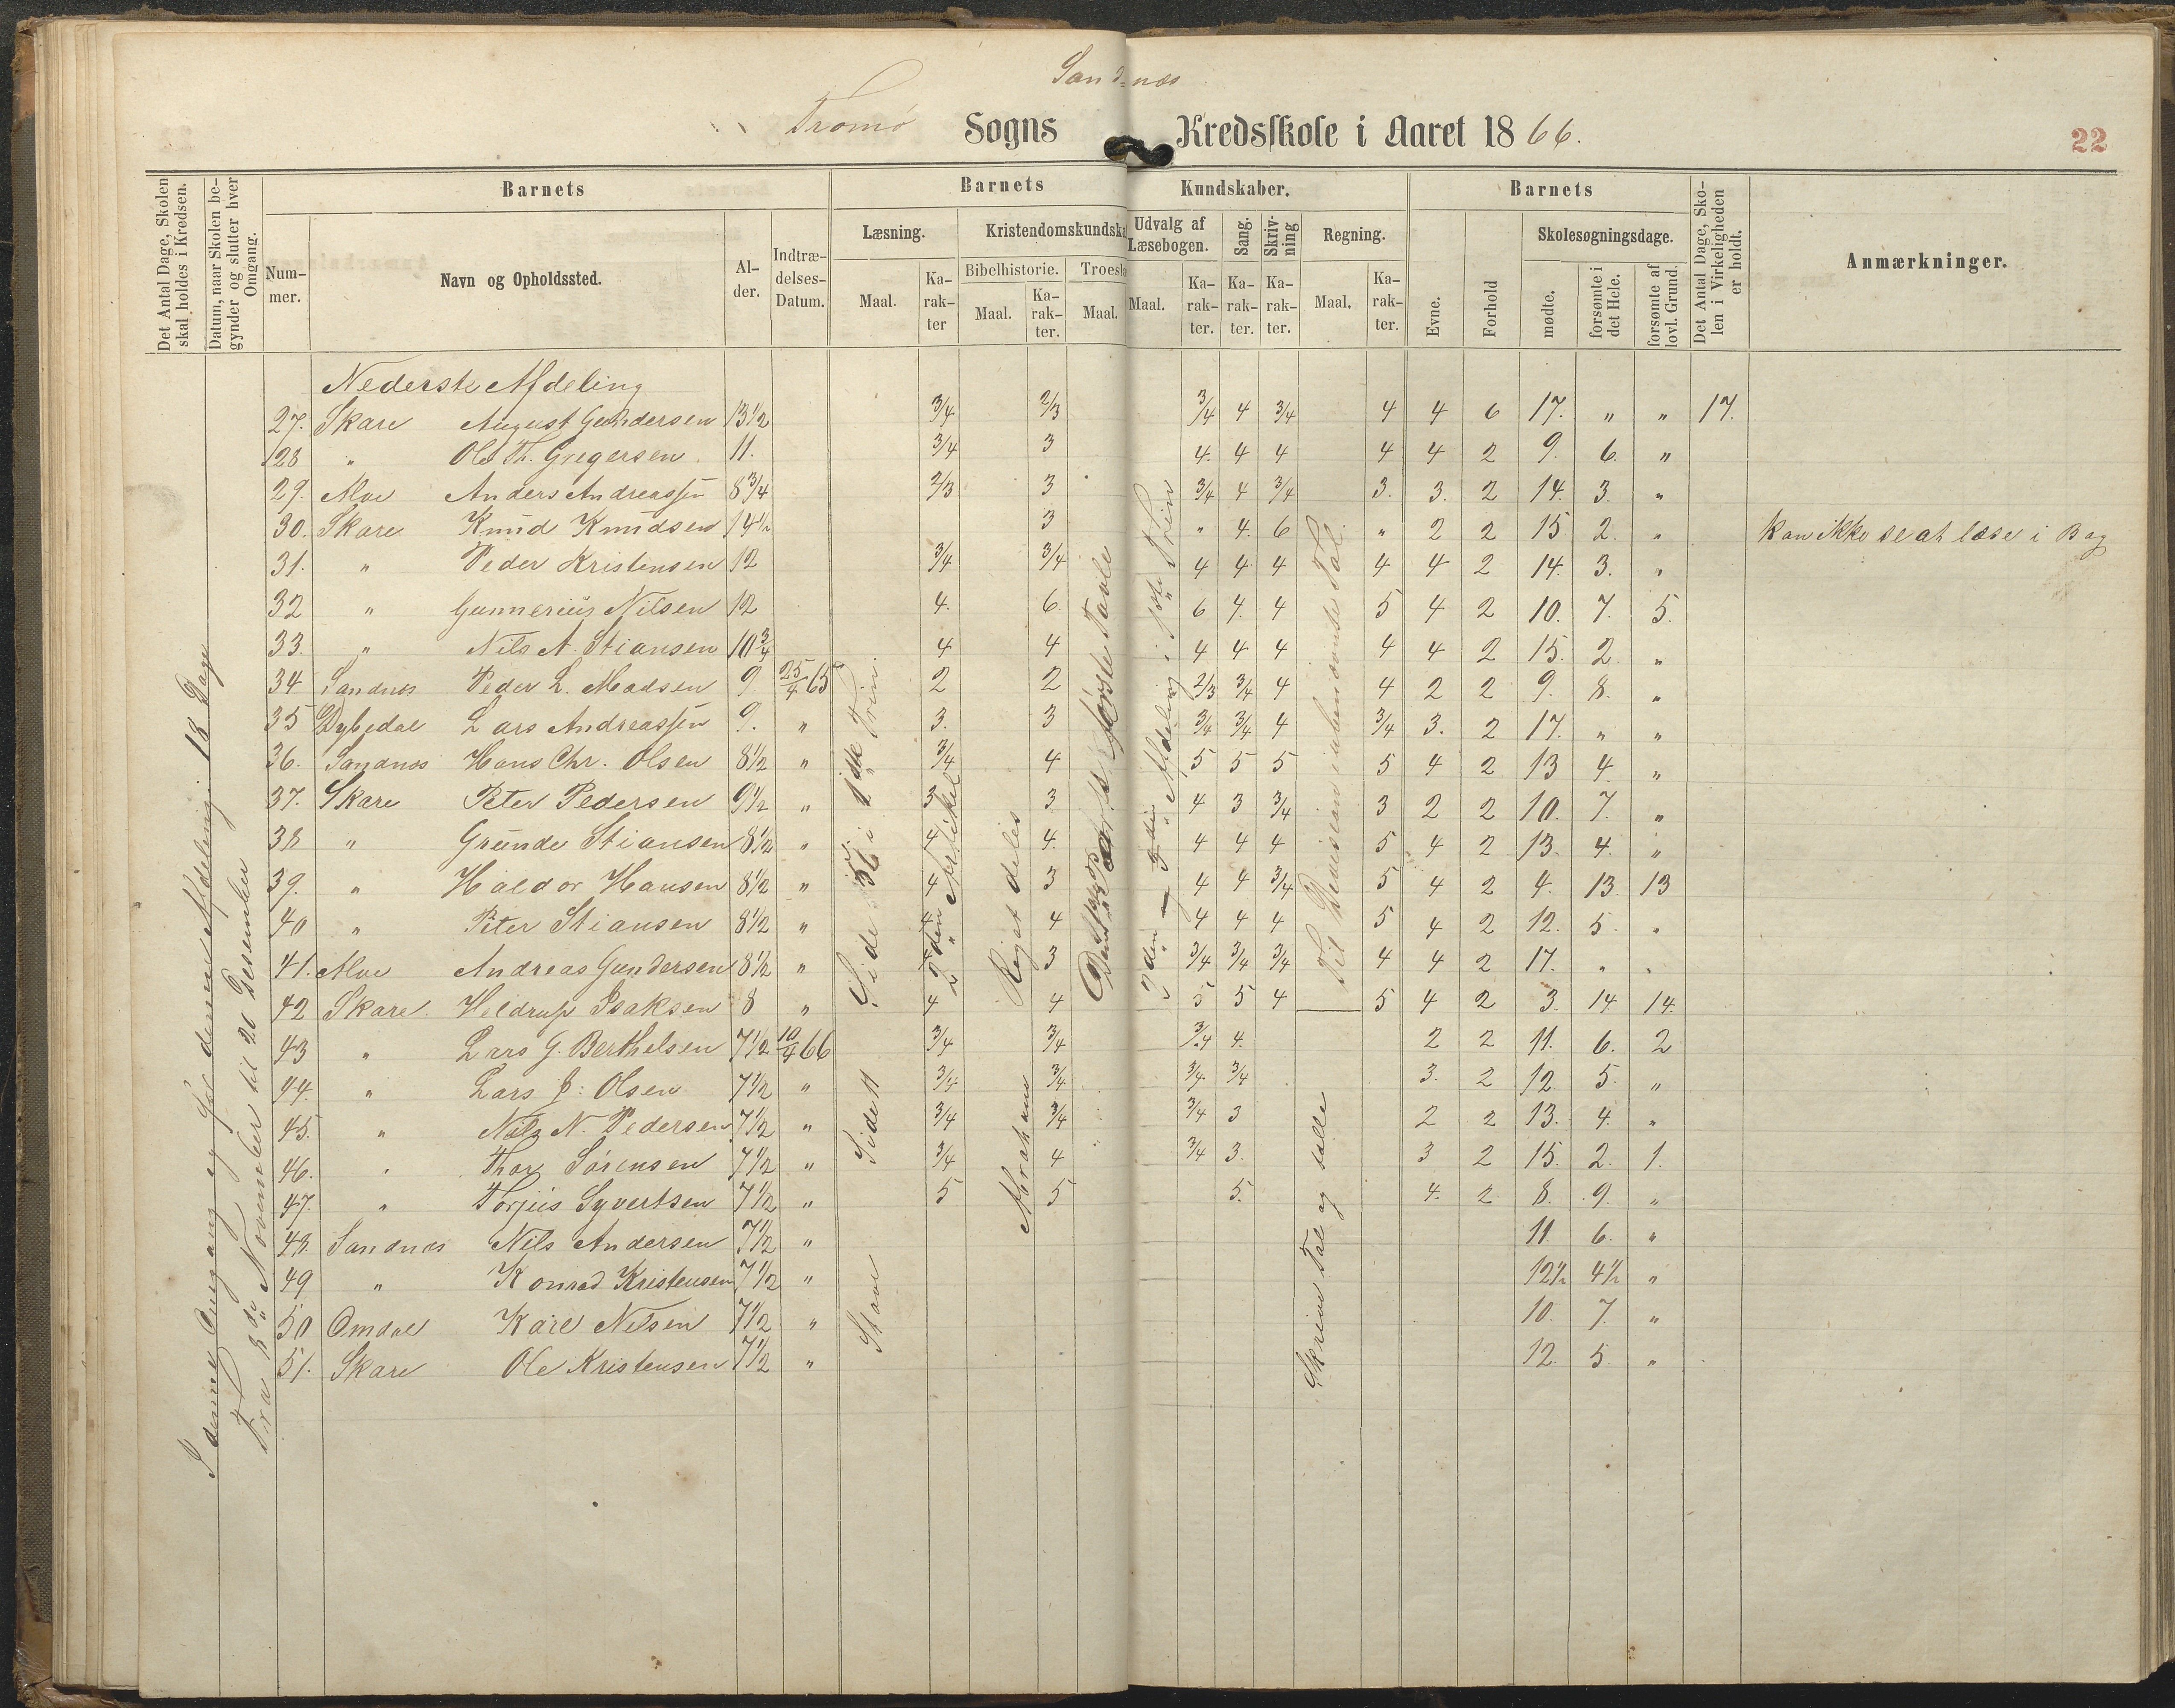 Sandnæs
Tromø Sogns Kredsskole i Aaret 1866.
22
Det Antal Dage, Skolen skal holdes i Kredsen.
Datum, naar Skolen begynder og slutter hver Omgang.
Barnets
Nummer.
Navn og Opholdssted.
Alder.
Indtrædelses-Datum.
Barnets Kundskaber.
Læsning.
Maal.
Karakter
Kristendomskundska
Bibelhistorie.
Maal.
Karakter.
Troesl
Maal.
Udvalg af Læsebogen.
Maal.
Karakter.
Sang.
Karakter.
Skrivning
Karakter.
Regning.
Maal.
Karakter.
Barnets
Evne.
Forhold
Skolesøgningsdage.
mødte.
forsømte i det Hele.
forsømte af lovl. Grund.
Det Antal Dage, Skolen i Virkeligheden er holdt.
Anmærkninger.
I denne Omgang og for denne Afdeling: 18 Dage
Fra 13de November til 20 Desember
Nederste Afdeling
27. Skare August Gundersen 13 1/2 3/4 2/3 3/4 4 3/4 4 4 6 17. " " 17.
28 " Ole Th. Gregersen. 11. 3/4 3 4. 4 4 4 4 2 9. 6. "
29. Alve Anders Andreassen 8 3/4 2/3 3 3/4 4 3/4 3. 3. 2 14. 3. "
30. Skare Knud Knudsen 14 1/2 3 " 4. 6 " 2 2 15 2. " kan ikke se at læse i Bog
31. " Peder Kristensen 12 3/4 3/4 4 4 4 4 4 2 14. 3. "
32 " Gunnerius Nilsen 12 4. 6. 6 4. 4 5 4 2 10. 7. 5.
33. " Nils A. Stiansen 10 3/4 4 4 4 4 4 4 4 2 15. 2. "
34 Sandnæs Peder L. Madsen 9 25/4 65 2 2 2/3 3/4 4 4 2 2 9. 8. "
35 Dybedal Lars Andreassen 9. " 3. 3 3/4 3/4 4 3/4 3. 2 17. " "
36. Sandnæs Hans Chr. Olsen 8 1/2 " 3/4 4 5 5 5 5 4 2 13 4. "
37. Skare Peter Pedersen 9 1/2 " 3 3 4 3 3/4 3 2 2 10. 7. "
38 " Grunde Stiansen 8 1/2 " 4 4. 4 4 4 5 4 2 13. 4. "
39. " Haldor Hansen 8 1/2 " 4 3 4 4 3/4 5 4 2 4. 13. 13
40 " Peter Stiansen 8 1/2 " 4 4 4 4 4 5 4 2 12. 5. "
41. Alve Andreas Gundersen 8 1/2 " 3 3/4 3/4 3/4 4 4 2 17. " "
42 Skare Heldrup Isaksen 8 " 4 4 5 5 4 5 4 2 3. 14. 14.
43 " Lars G. Berthelsen 7 1/2 10/4 66 3/4 3/4 3/4 4. 2 2 11. 6. 2
44. " Lars J: Olsen 7 1/2 " 3/4 3/4 3/4 3/4 3. 2 12 5. "
45. " Nils N. Pedersen 7 1/2 " 3/4 3/4 3/4 3 2 2 13. 4. "
46. " Thor Sørensen 7 1/2 " 3/4 4 3/4 3. 3 2 15. 2. 1.
47. " Torjus Syvertsen 7 1/2 " 5 5 5. 4. 2 8. 9. "
48. Sandnæs Nils Andersen 7 1/2 " 11. 6. "
49 " Konrad Kristensen 7 1/2 " 12 1/2 4 1/2 "
50 Omdal Karl Nilsen 7 1/2 " 10. 7. "
51. Skare Ole Kristensen 7 1/2 " 12. 5. "
Side 56 i 1ste Trin.
Side 11
Stave
2den Artikel
Riget deles
Abraham
første Tavle
3den Afdeling i 1ste Trin
Til Division i ubenævnte Tal.
Skrive Tal og tælle